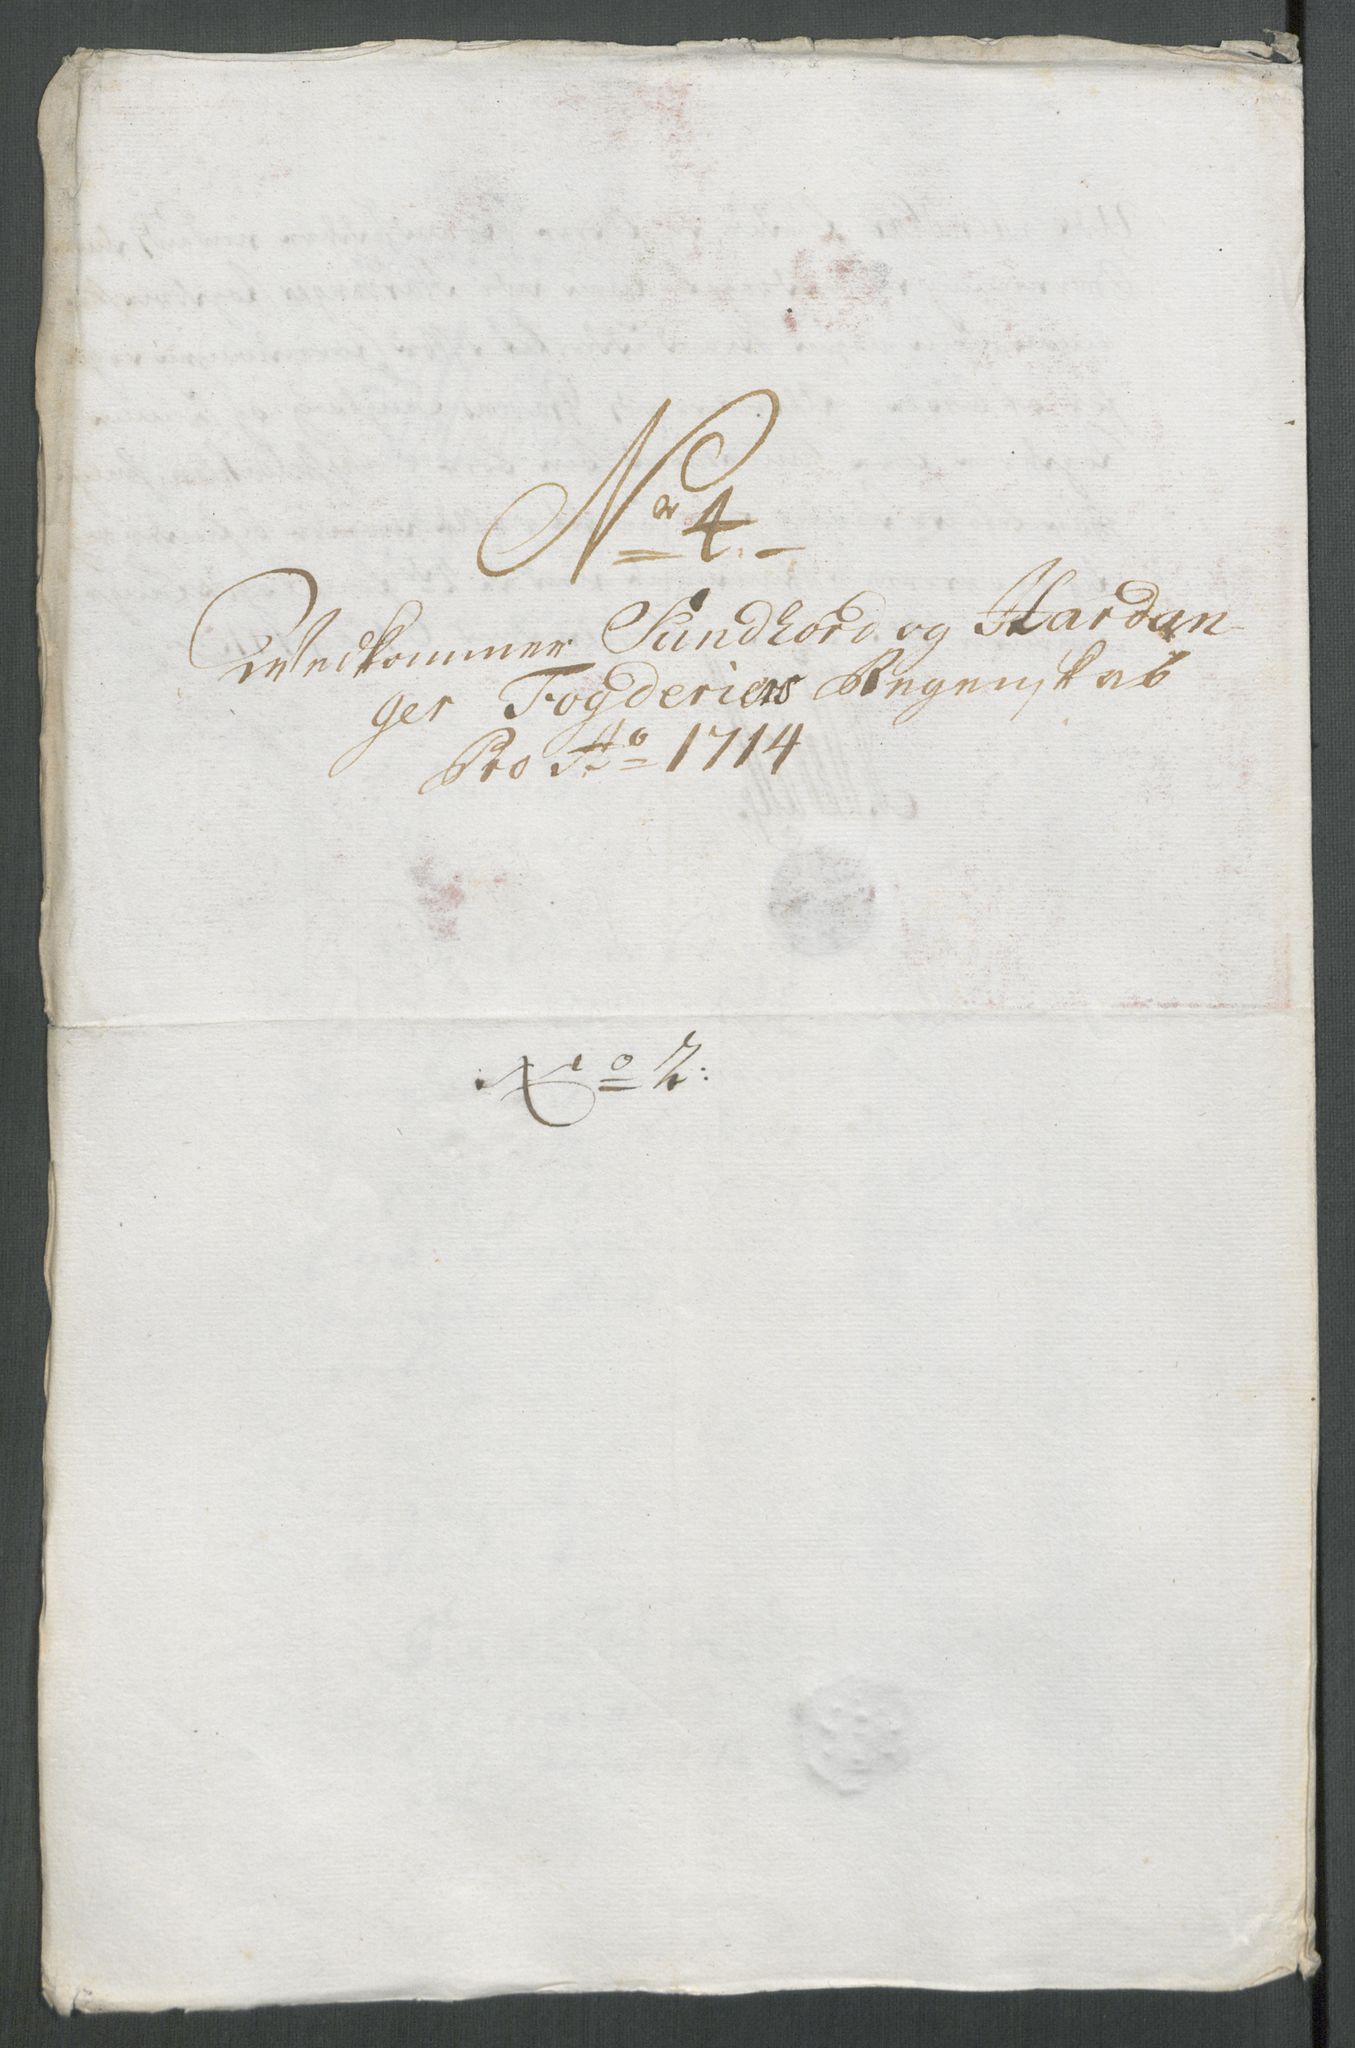 Nr 4.
Vedkommer Sundhord og Hardan-
ger Fogderiers Regenskab
Pro Ao 1714
No 2: